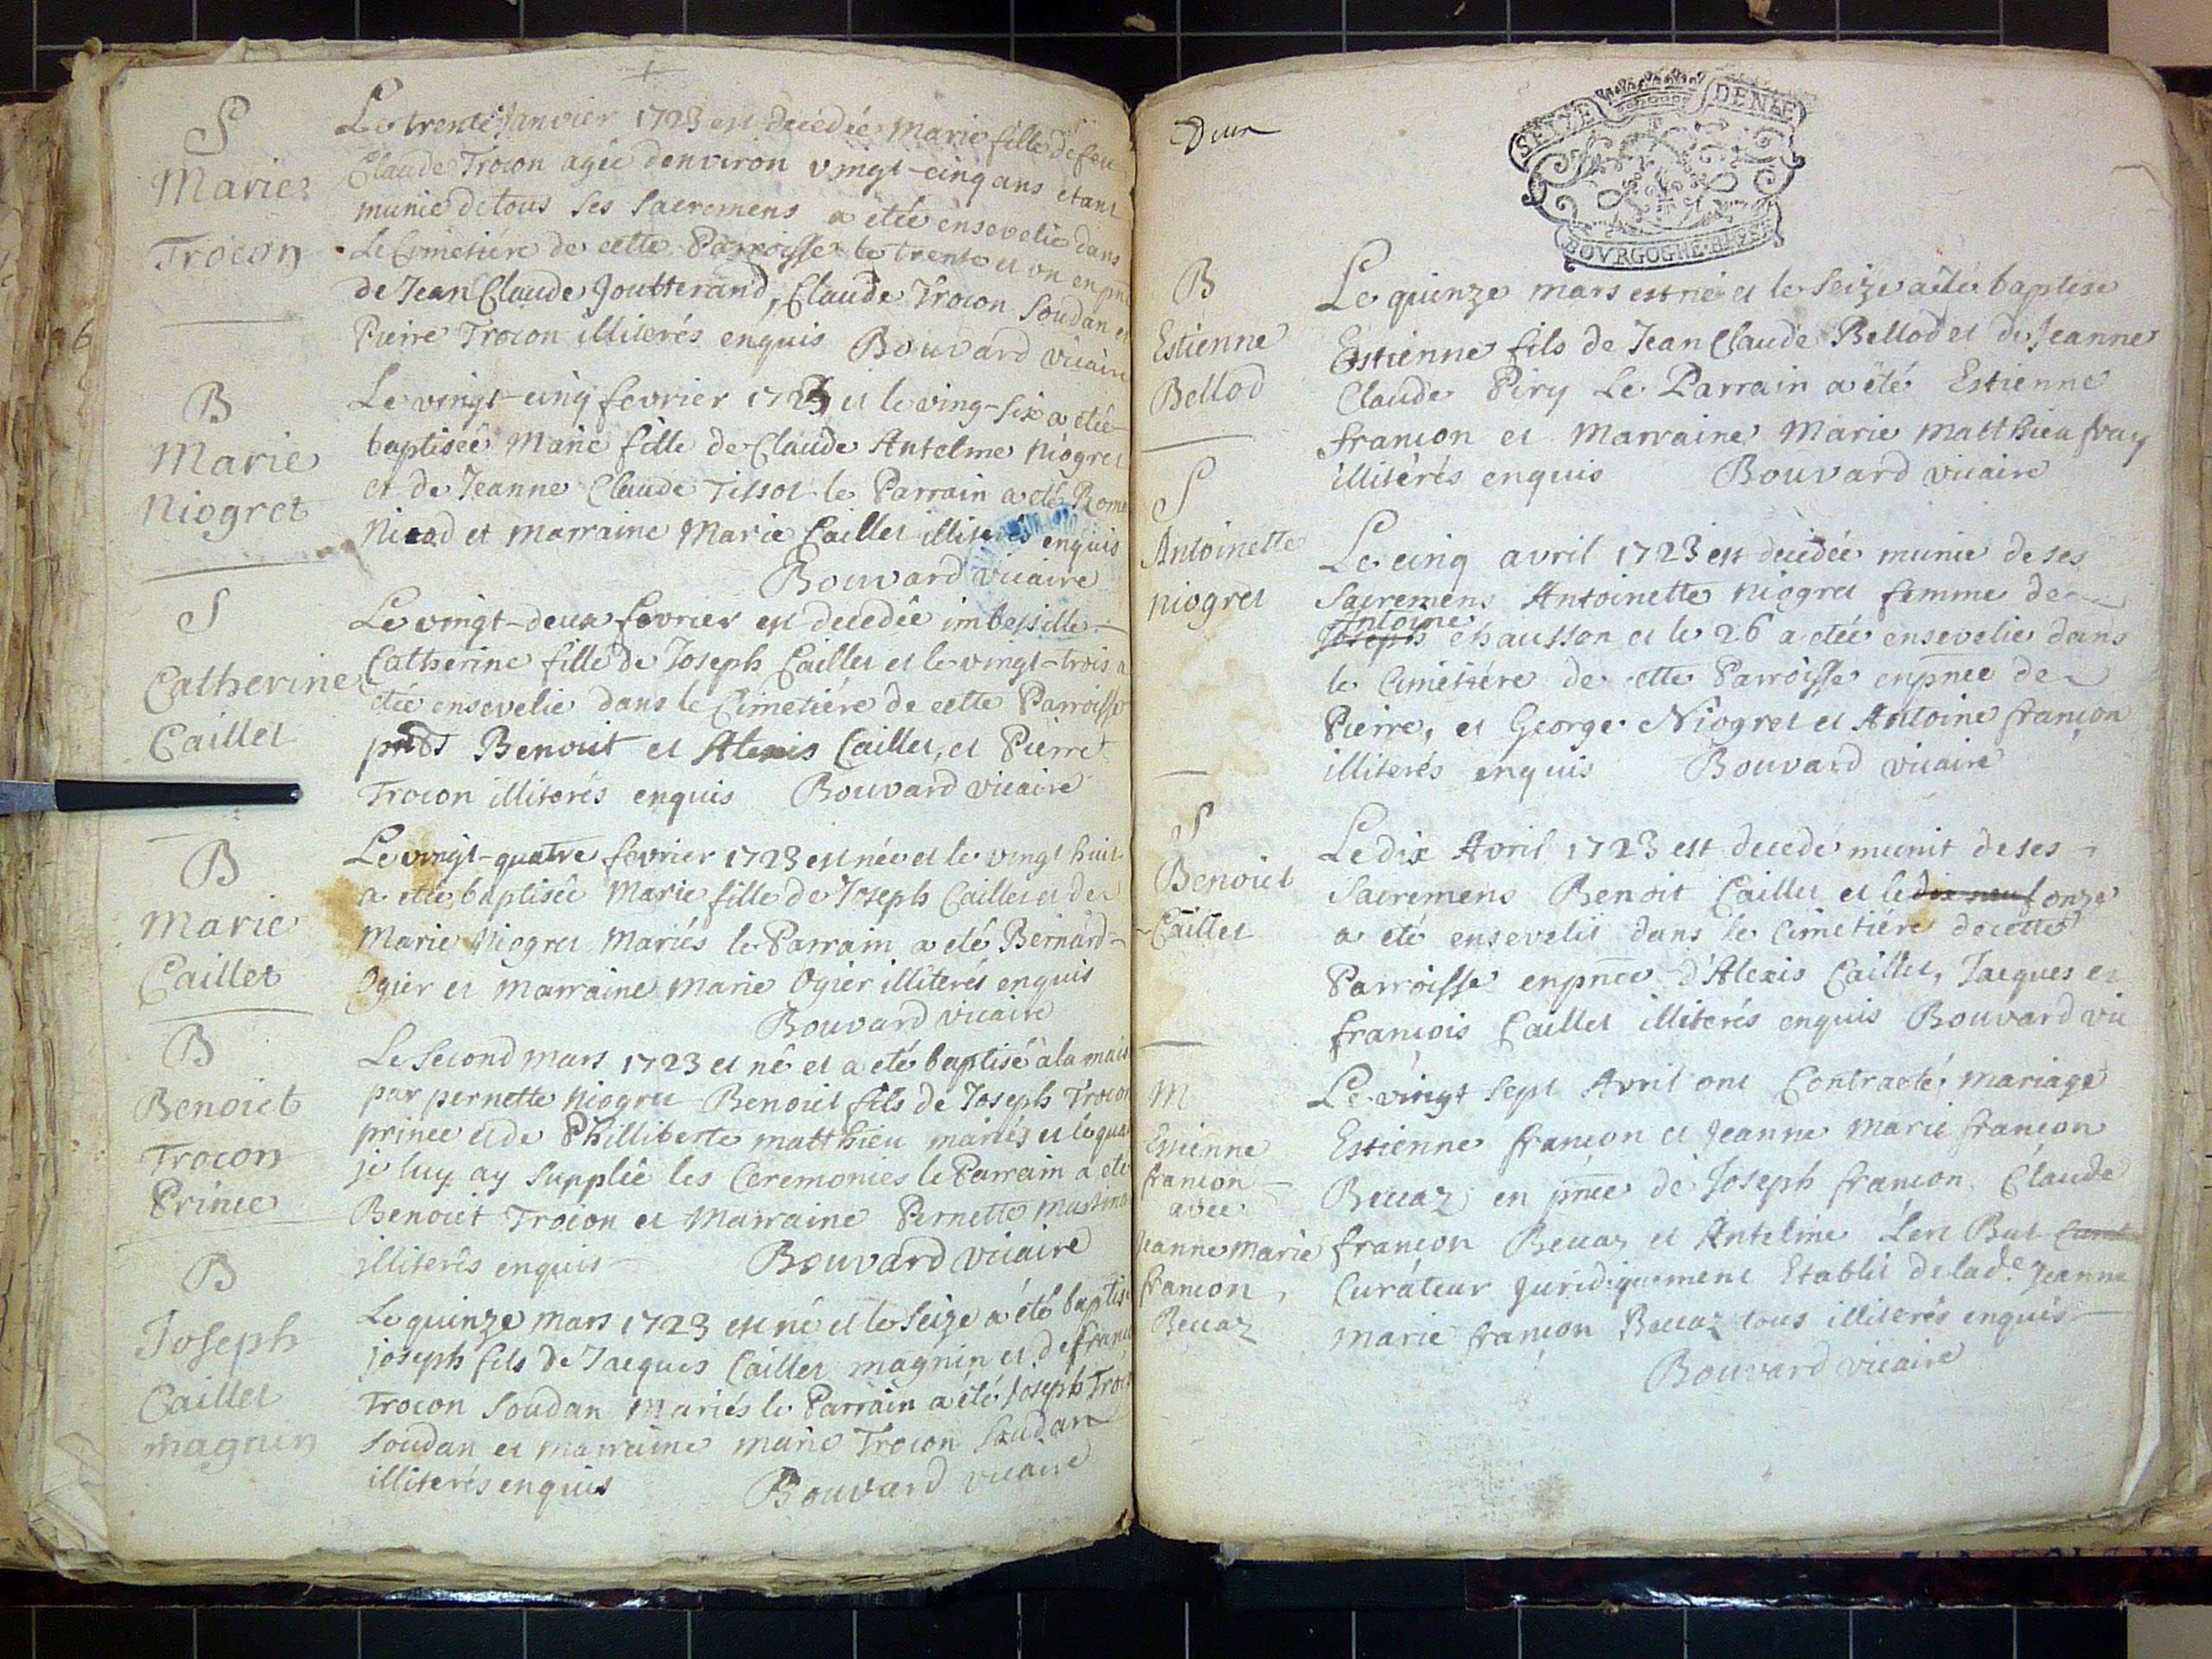 S
Marie
Trocon
Le trente Janvier 1723 est decedée Marie fille de feu
Claude Trocon agée denviron vingt-cinq ans etant
munie de tous ses Sacremens a etée ensevelie dans
Le Cimetiére de cette Parroisse le trente et un enpnce
de Jean Claude Joutterand, Claude Trocon Soudan et
Pierre Trocon illiterés enquis Bouvard vicaire
B
Marie
Niogret
Le vingt-cinq fevrier 1723 et le ving-six a etée
baptisée Marie fille de Claude Antelme Niogret
et de Jeanne Claude Tissot le Parrain a eté
Nicod et Marraine Marie Caillet illiterés enquis
Bouvard vicaire
S
Catherine
Caillet
Le vingt-deux fevrier est decedée imbessille
Catherine fille de Joseph Caillet et le vingt-trois a
etée ensevelie dans le Cimetiére de cette Parroisse
pnts Benoit et Alexis Caillet, et Pierre
Trocon illiterés enquis Bouvard vicaire
B
Marie
Caillet
Le vingt-quatre fevrier 1723 est née et le vingt huit
a etée baptisée Marie fille de Joseph Caillet et de
Marie Niogret Mariés le Parrain a eté Bernard
Ogier et Marraine Marie Ogier illiterés enquis
Bouvard vicaire
B
Benoict
Trocon
Prince
Le Second Mars 1723 et né et a eté baptisé à la mais
par pernette Niogret Benoict fils de Joseph Trocon
prince et de Philliberte matthieu mariés et lequa
je luy ay Supplée les Ceremonies le Parrain a eté
Benoict Trocon et Marraine Pernette
illiterés enquis Bouvard vicaire
B
Joseph
Caillet
magnin
Le quinze mars 1723 est né et le Seize a été baptisé
joseph fils de Jacques Caillet magnin et de
Trocon Soudan Mariés le Parrain a été Joseph Troco
Soudan et marraine marie Trocon Soudan
illiterés enquis Bouvard vicaire
Deux
SEIZE DENIE
BOVRGOGNE BRESSE
B
Estienne
Bellod
Le quinze mars est né et le Seize a eté baptise
Estienne fils de Jean Claude Bellod et de Jeanne
Claude Piry Le Parrain a été Estienne
francon et Marraine Marie Matthieu fray
illitérés enquis Bouvard vicaire
S
Antoinette
Niogret
Le cinq avril 1723 est decedée munie de ses
Sacremens Antoinette Niogret femme de
Antoine
Joseph chausson et le 26 a etée ensevelie dans
le Cimetiére de cette Parroisse enpnce de
Pierre, et George Niogret et Antoine françon
illiterés enquis Bouvard vicaire
S
Benoict
Caillet
Le dix Avril 1723 est decedé munit de ses
Sacremens Benoit Caillet et le dix neuf onze
a eté ensevelit dans le Cimetiére de cette
Parroisse enpnce d'Alexis Caillet, Jacques et
francois Caillet illiterés enquis Bouvard vic
M
Estienne
francon
avec
Jeanne Marie
francon
Beccaz
Le vingt Sept Avril ont Contracté mariage
Estienne francon et Jeanne Marie francon
Beccaz en pnce de Joseph francon Claude
francon Beccaz et Antelme Lere But
Curateur Juridiquement Etablit de lade Jeanne
Marie francon Beccaz tous illiterés enquis
Bouvard vicaire